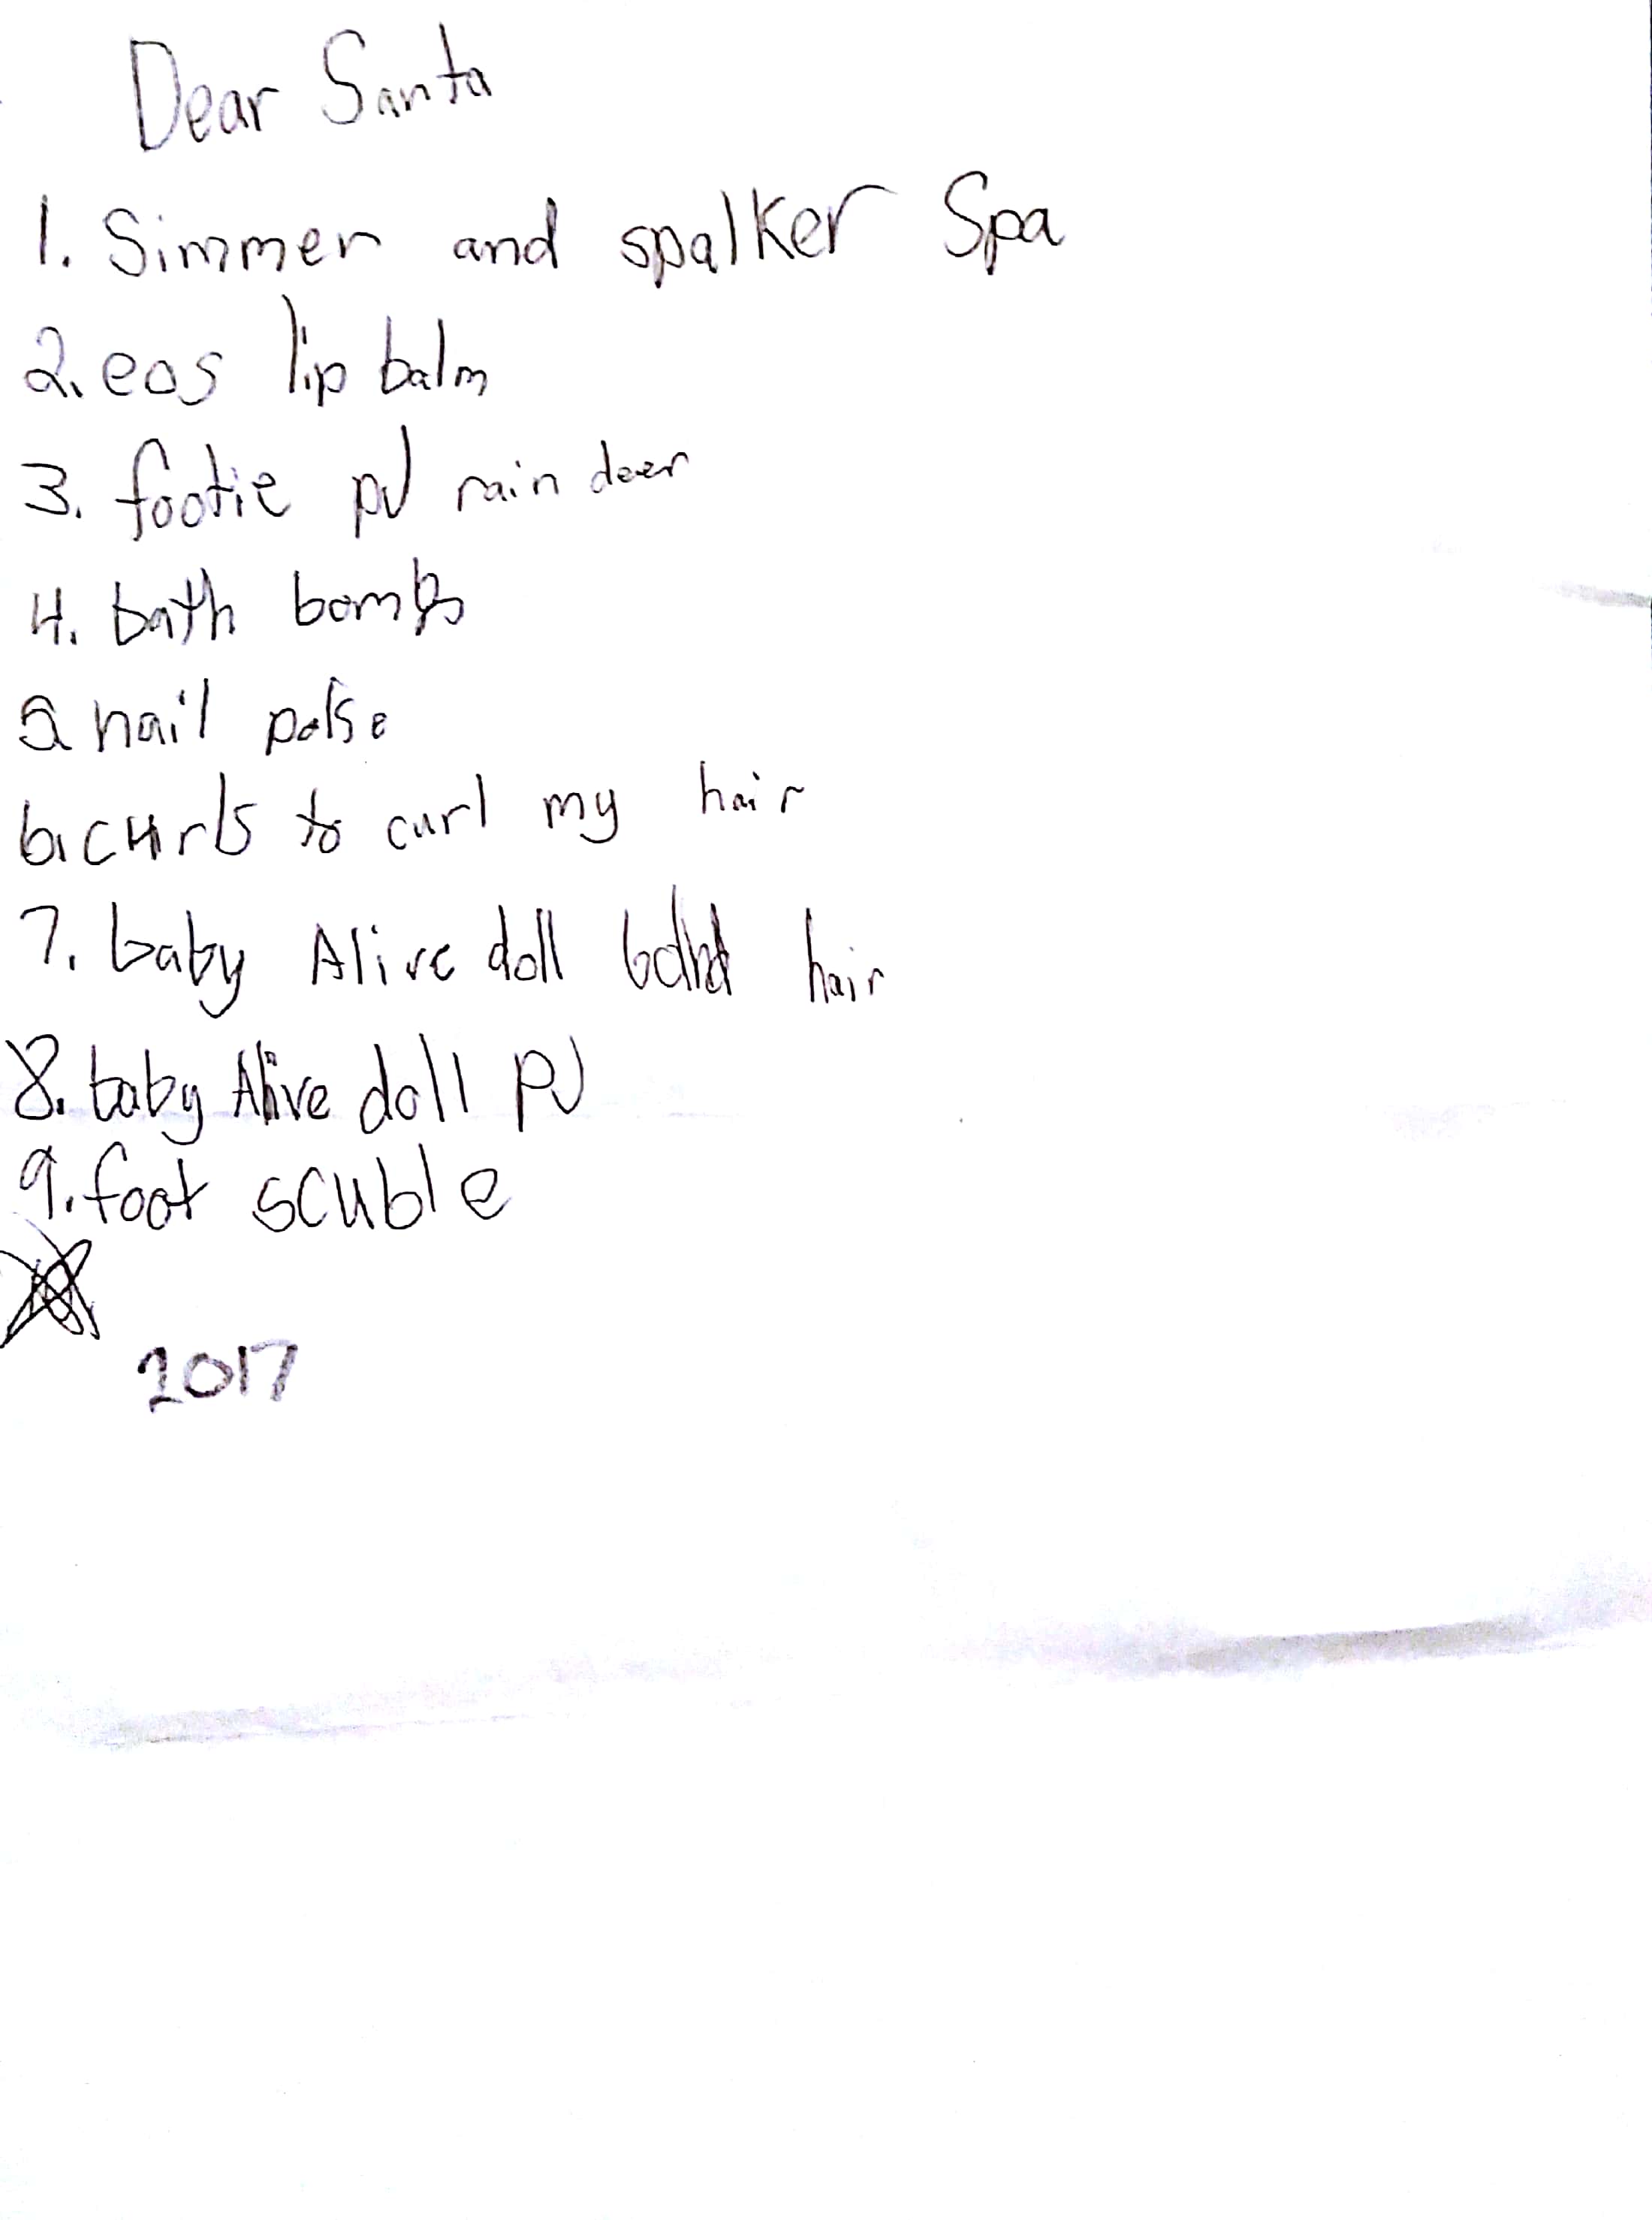 Dear Santa
1. Simmer and spalker Spa
2. eos lip balm
3. footie pJ rain deer
4. bath bombs
5 nail polse
6. curls to curl my hair
7. baby Alive doll hair
8. baby Alive doll pJ
9. foot scuble
2017